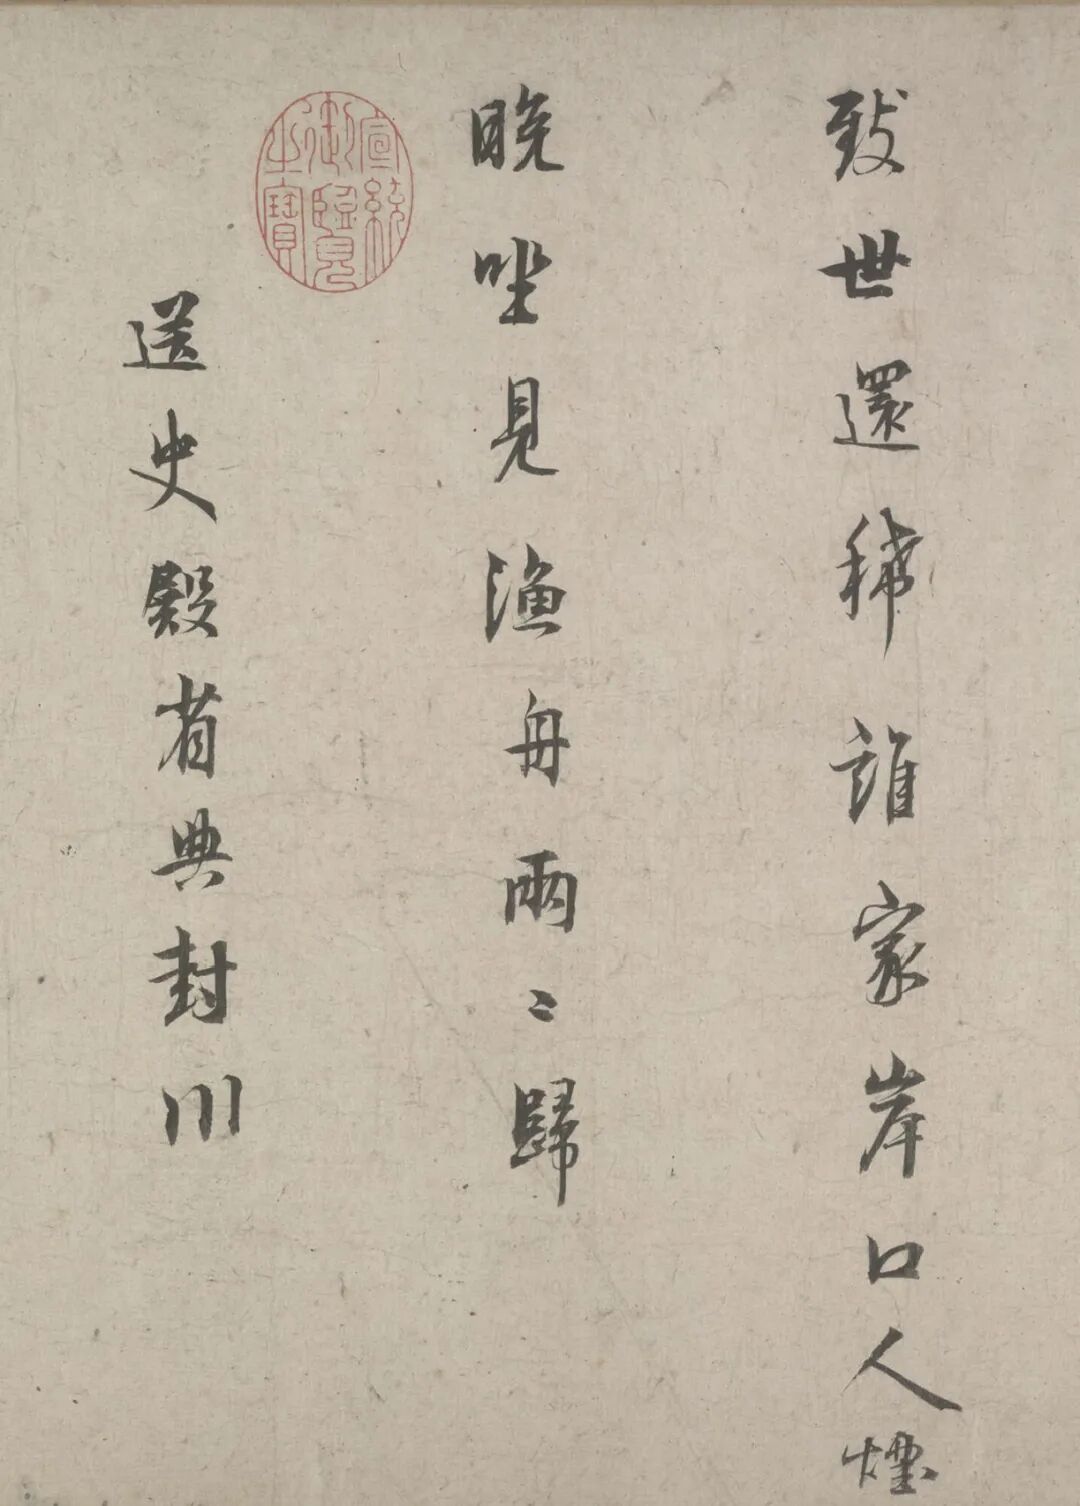 致世還稀誰家岸口人煙
晚坐見漁舟兩〻歸
宣統御覽之寶
送史殿省典封川